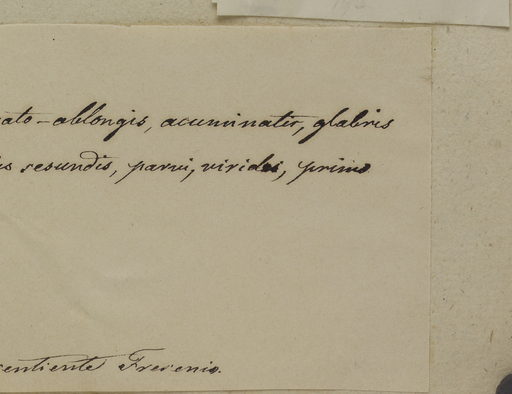 ato-oblongis, acuminatis, glabris
is secundis, parvi, virides, primo
entiente Fresenio.